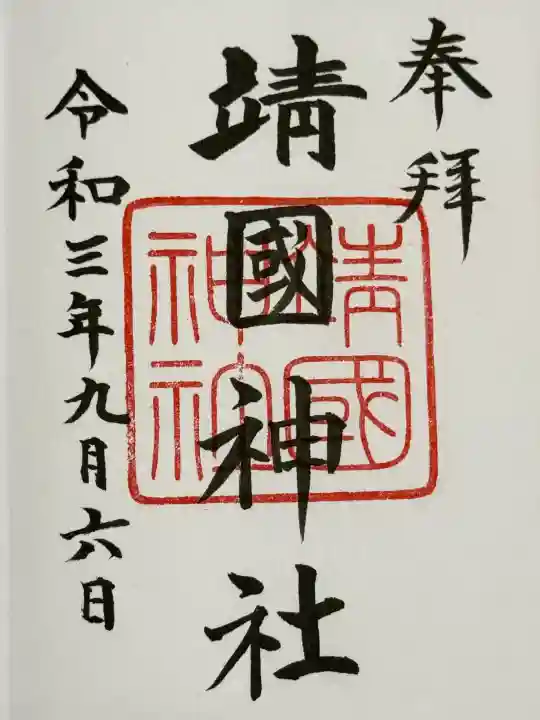 奉拝
靖國神社
令和三年九月六日
靖國
神社